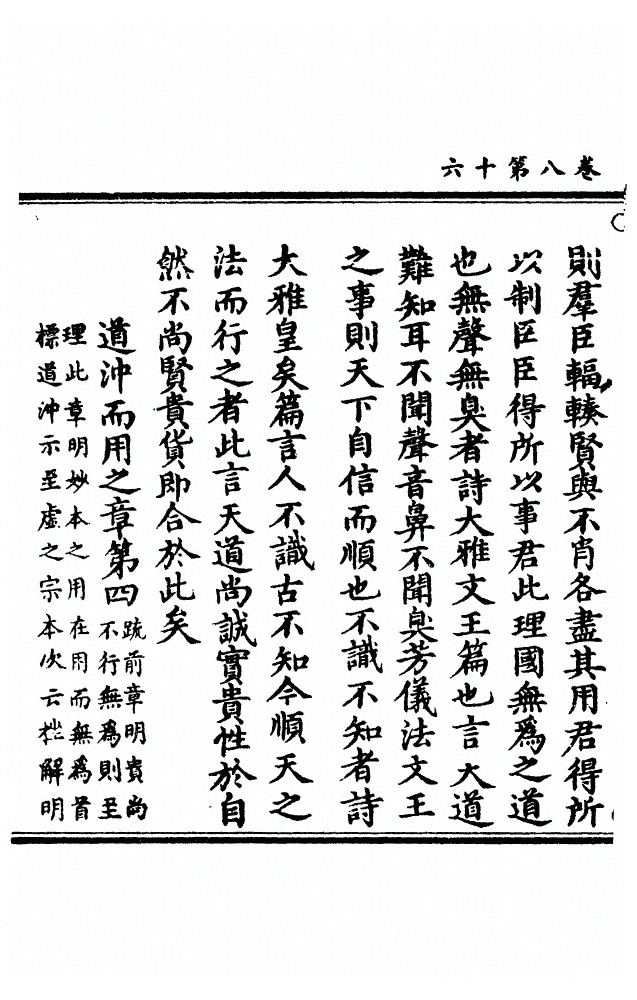 卷八第十六
則羣臣輻輳賢與不肖各盡其用君得所
以制臣臣得所以事君此理國無爲之道
也無聲無臭者詩大雅文王篇也言大道
難知耳不聞聲音鼻不聞臭芳儀法文王
之事則天下自信而順也不識不知者詩
大雅皇矣篇言人不識古不知今順天之
法而行之者此言天道尚誠實貴性於自
然不尚賢貴貨即合於此矣
道沖而用之章第四
疏前章明貴尚
不行無爲則至
理此章明妙本之用在用而無爲首
標道沖示至虛之宗本次云挫解明